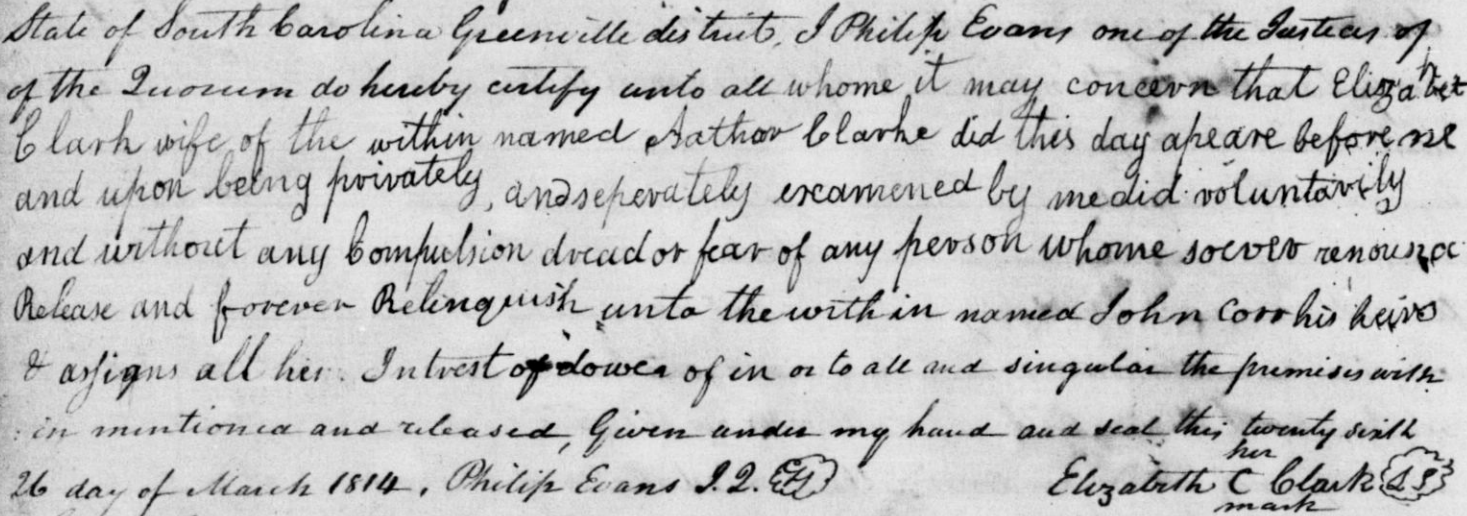 State of South Carolina Greenville district, I Philip Evans one of the Justices of
of the Quorum do hereby certify unto all whome it may concern that Elizabet
Clark wife of the within named Clarke did this day apeare before me
and upon being privately, and seperately excamened by me did voluntarily
and without any Compulsion dread or fear of any person whome soever renounce
Release and forever Relinquish unto the within named John Corr his heirs
& assigns all her Intrest of dower of in or to all and singular the premises with
in mentioned and released, Given under my hand and seal this twenty sixth
26 day of March 1814. Philip Evans J.Q. Elizabeth C Clark LS
her
mark